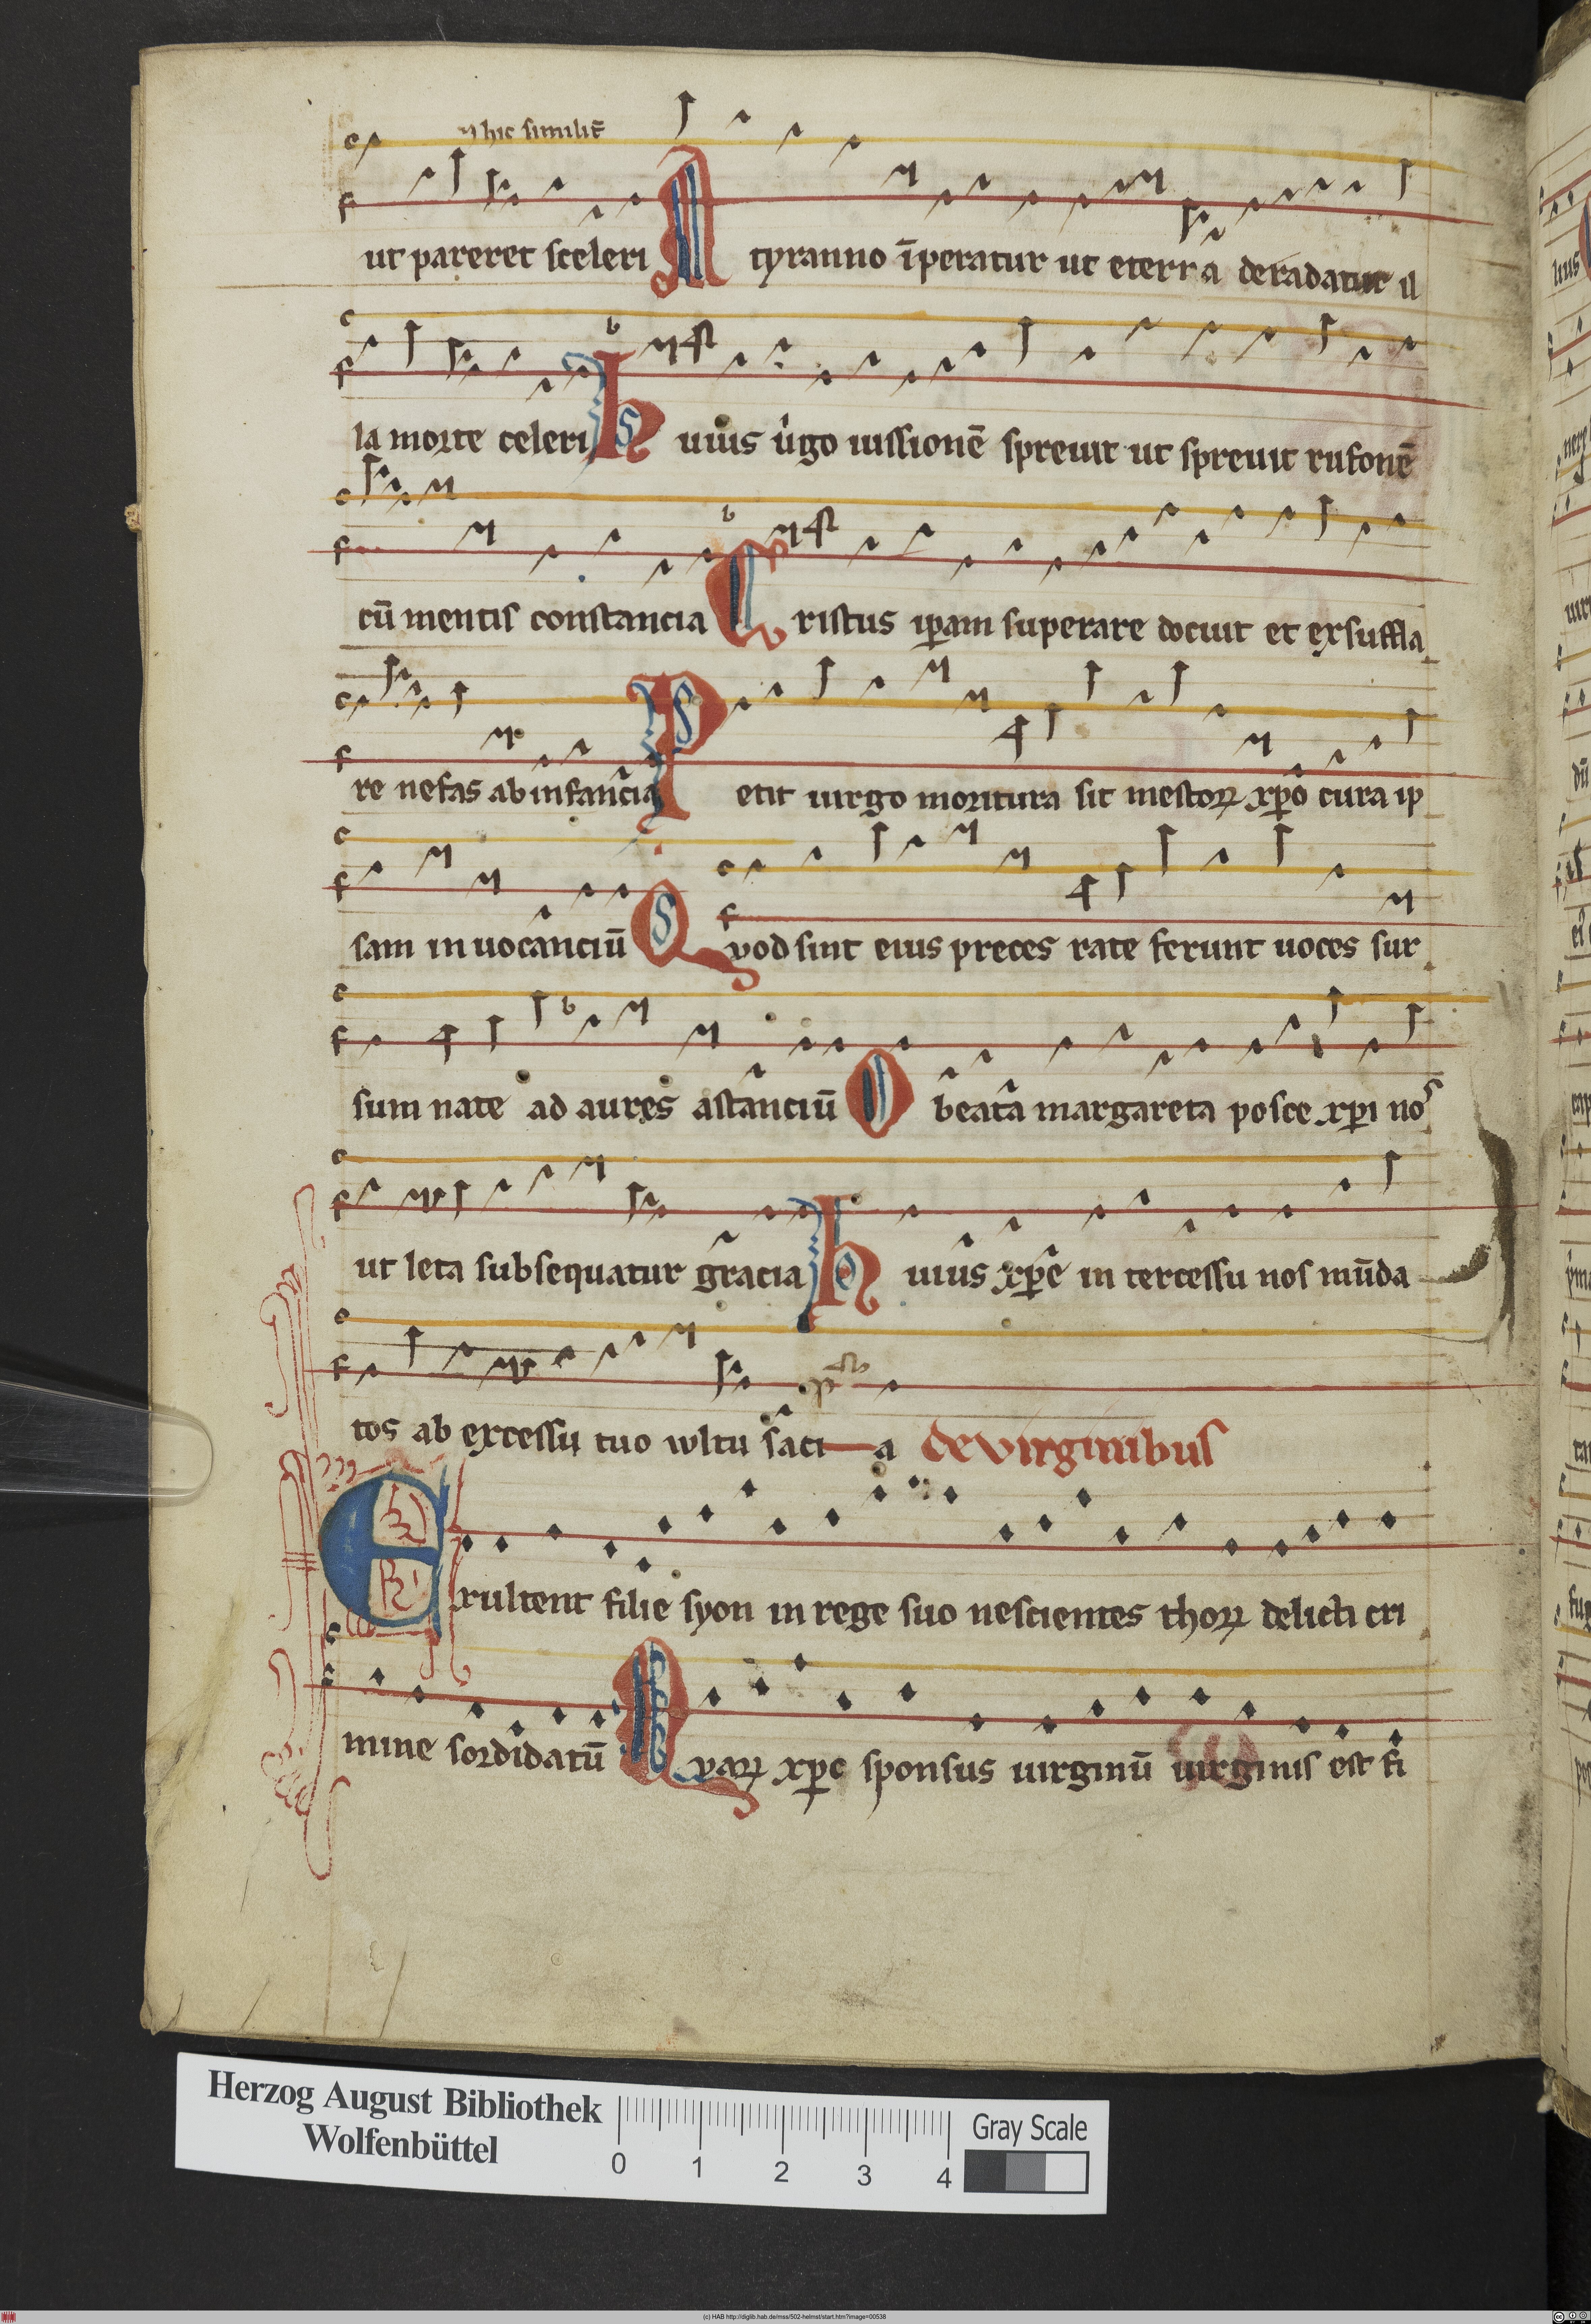 hic similit̄
ut pareret sceleri A tyranno īperatur ut eterra deradatur il
la morte celeri h uius v̓go iussionē spreuit ut spreuit rufonē
cū mentis constancia C ristus ip̄am superare docuit et exsuffla
re nefas ab infancia P etit uirgo moritura sit mestoꝝ xp̄o cura ip
sam inuocanciū Q vod sint eius preces rate ferunt uoces sur
sum nate ad aures astanciū O beata margareta posce xp̄i no
ut leta subsequatur gracia h uius xp̄e in tercessu nos mūda
tos ab excessu tuo wltu saci a de virginibus
E xultent filie syon in rege suo nescientes thoꝝ delicti cri
mine sordidatū Q varꝝ xp̄c sponsus uirginū uirginis est fi
Herzog August Bibliothek
Wolfenbüttel
0 1 2 3 4
Gray Scale
(c) HAB http://diglib.hab.de/mss/502-helmst/start.htm?image=00538